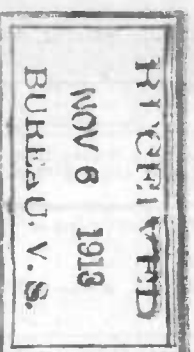 RECEIVED
NOV 6 1913
BUREAU. V. S.